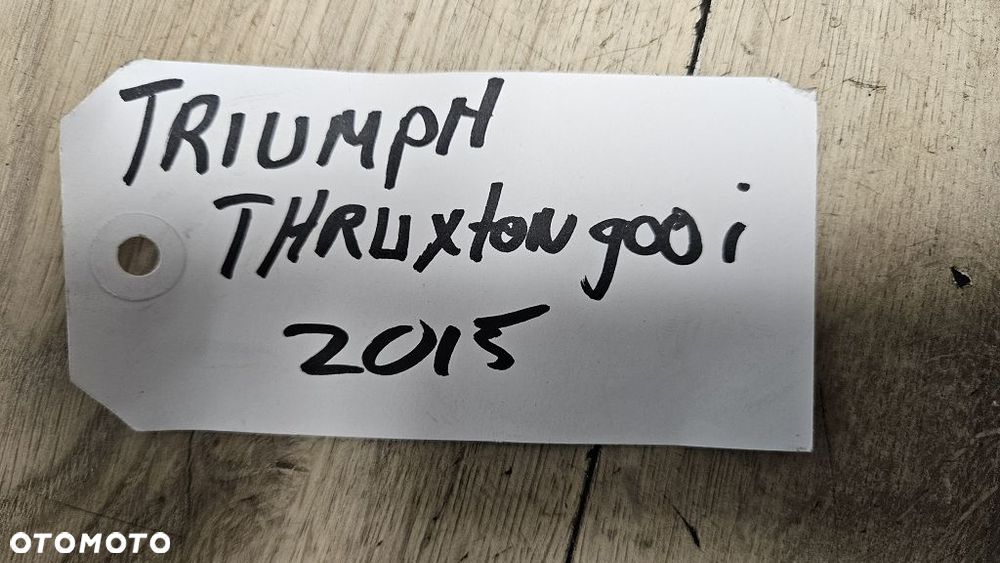 TRIUMPH
THRUXtON 900 i
2015
OTOMOTO